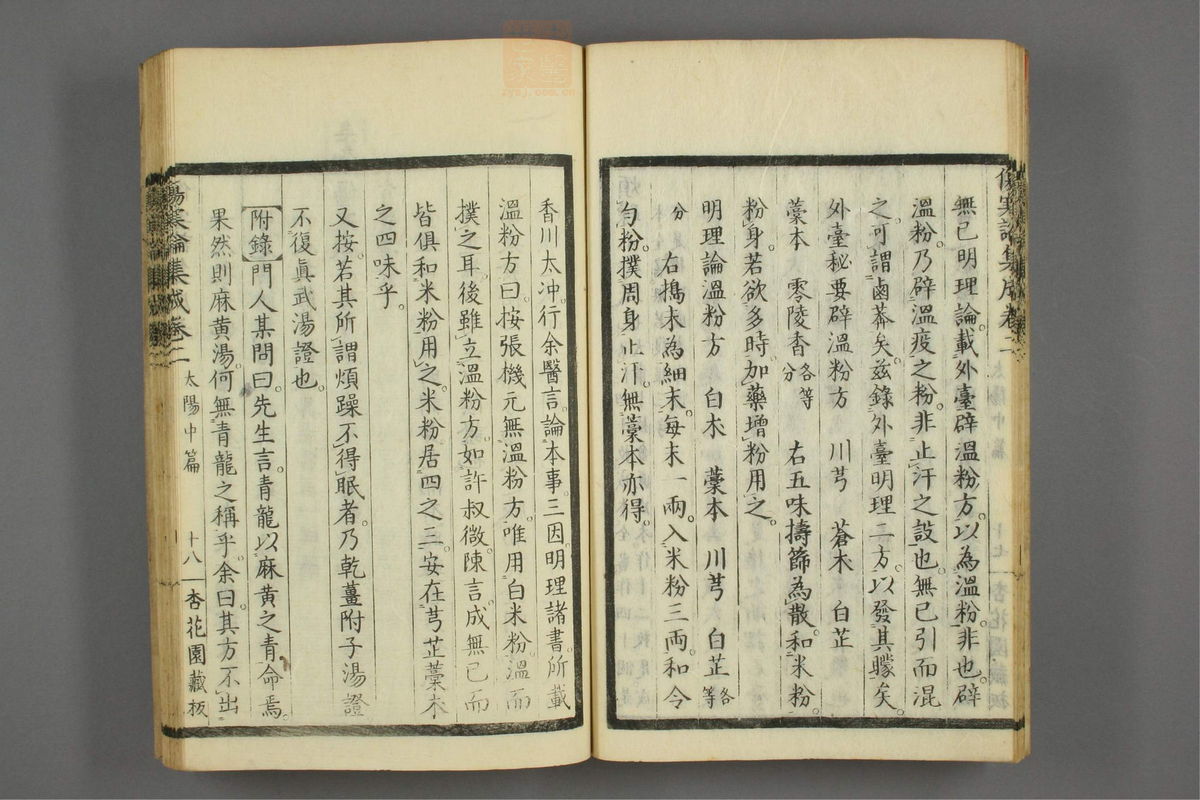 無已明理論。載外臺辟溫粉方。以為溫粉。非也。辟
溫粉。乃辟溫疫之粉。非止汗之設也。無已引而混
之。可謂鹵莽矣。茲錄外臺明理二方。以發其矇矣。
外臺秘要辟溫粉方　川芎　蒼朮　白芷
藁本　零陵香各等分　右五味擣篩為散。和米粉。
粉身。若欲多時。加藥增粉用之。
明理論溫粉方　白朮　藁本　川芎　白芷各等
分　右擣末為細末。每末一兩。入米粉三兩。和令
勻。粉撲周身止汗。無藁本亦得。
香川太冲。行余醫言。論本事。三因。明理諸書。所載
溫粉方曰。按張機元無溫粉方。唯用白米粉。溫而
撲之耳。後雖立溫粉方。如許叔微。陳言。成無已。而
皆俱和米粉用之。米粉居四之三。安在芎芷藁朮
之四味乎。
又按。若其所謂煩躁不得眠者。乃乾薑附子湯證。
不復眞武湯證也。
附錄 門人某問曰。先生言。青龍以麻黃之青命焉。
果然則麻黃湯。何無青龍之稱乎。余曰。其方不出
傷寒論集成卷二　太陽中篇　十八　杏花園藏板